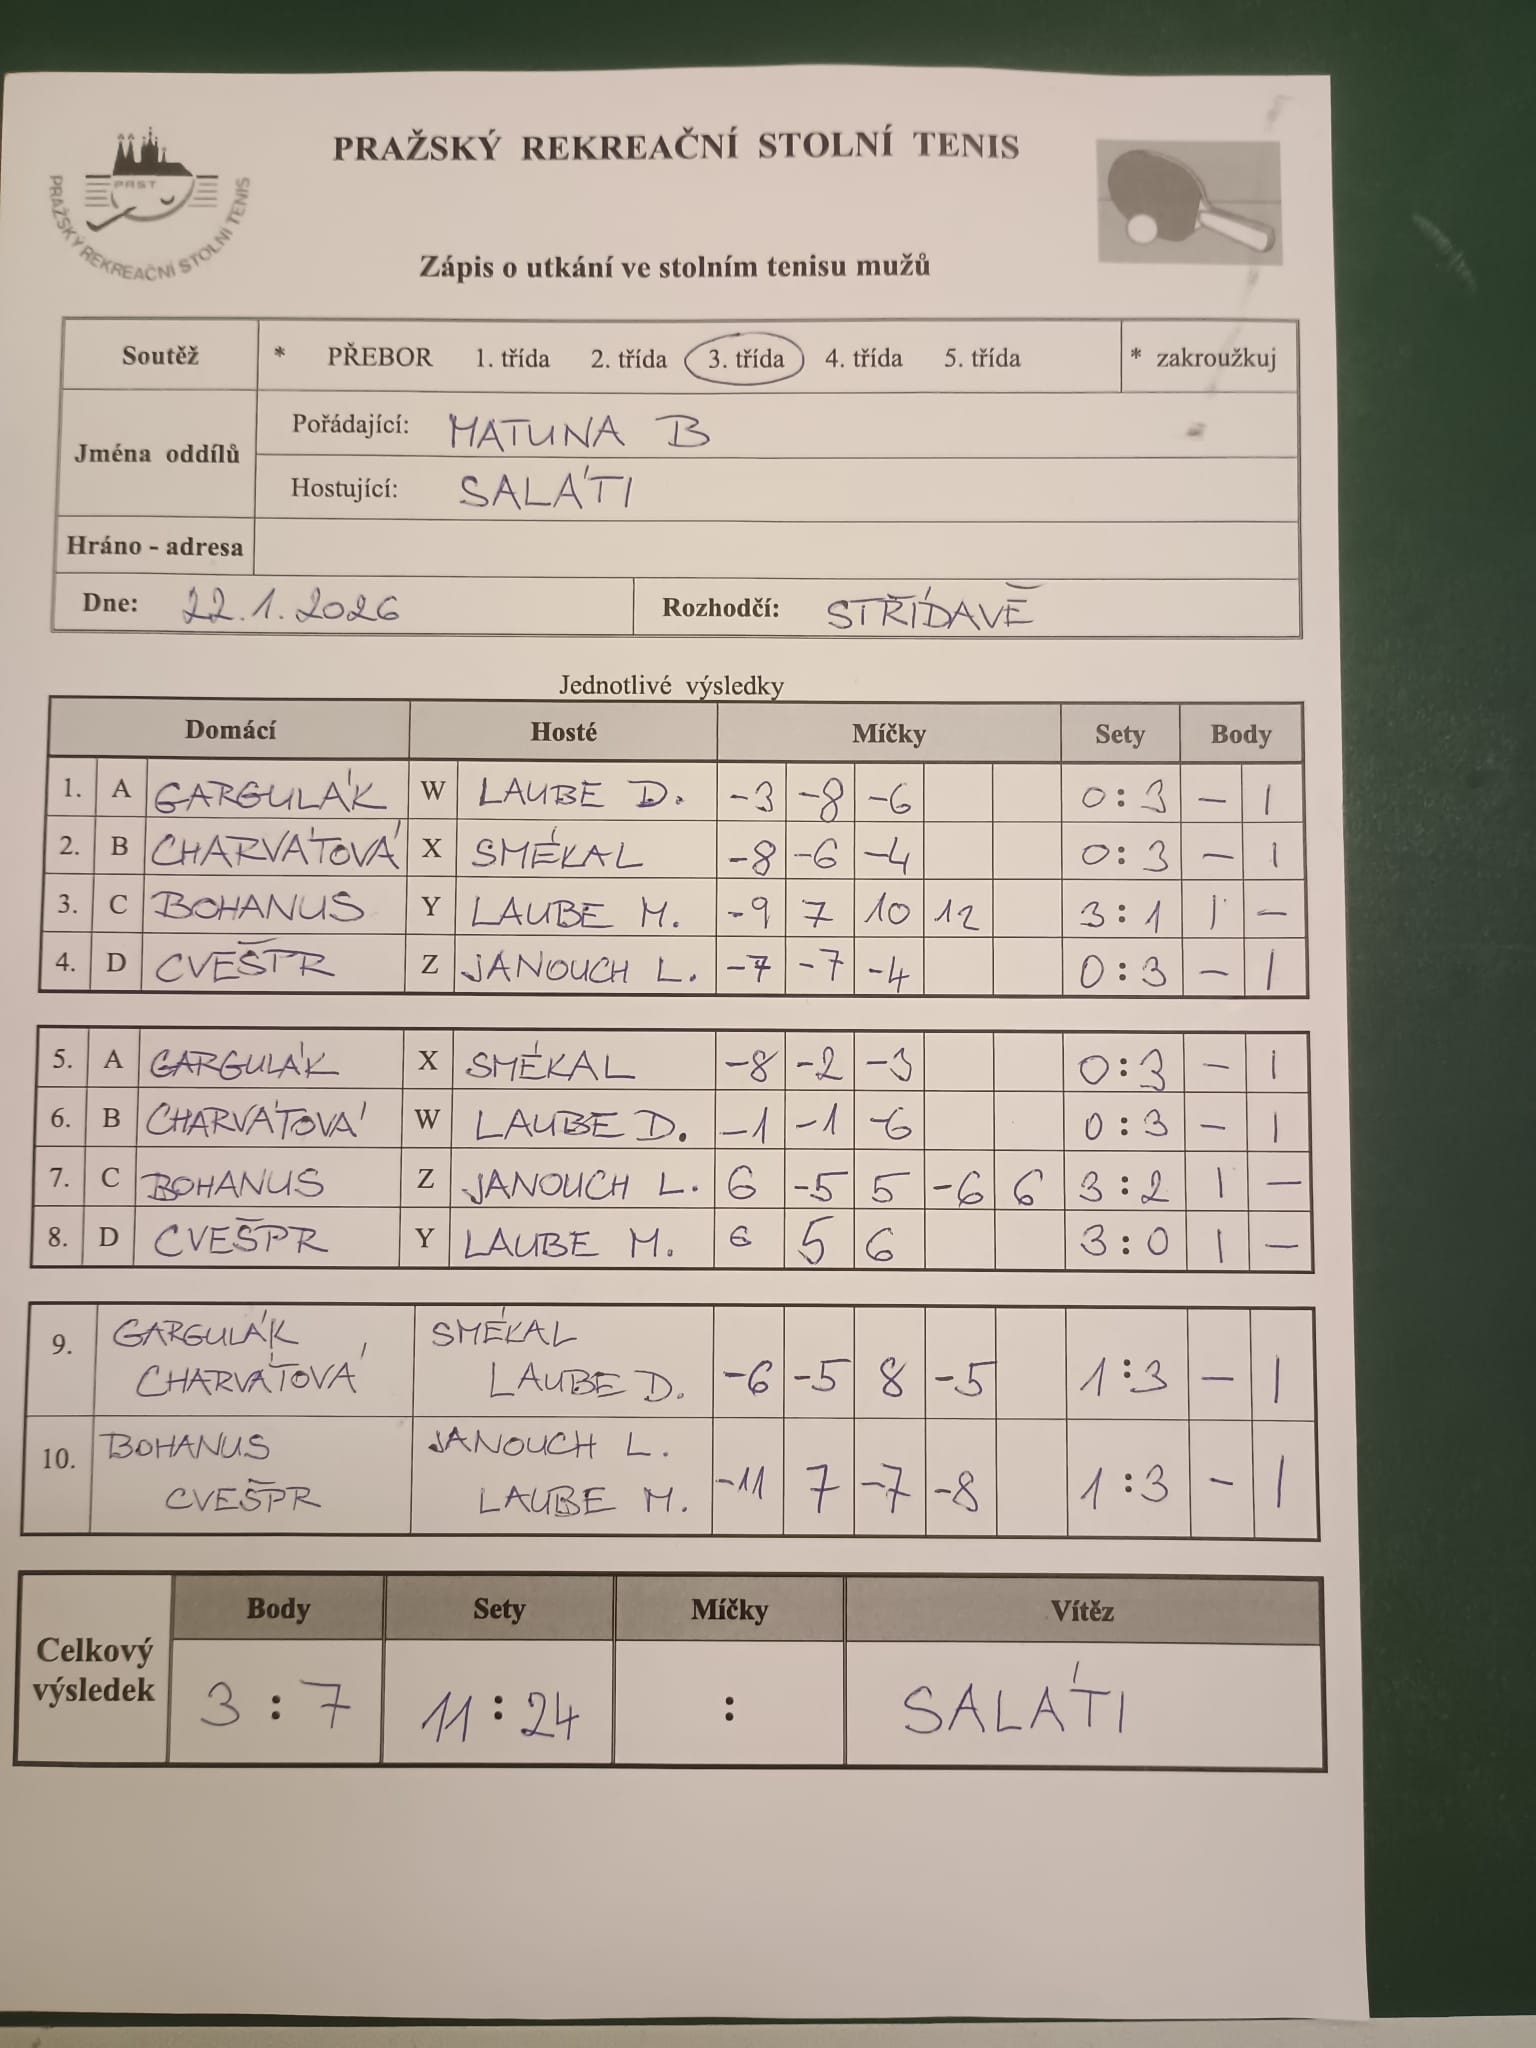 PRST
PRAŽSKÝ REKREAČNÍ STOLNÍ TENIS
PRAŽSKÝ REKREAČNÍ STOLNÍ TENIS
Zápis o utkání ve stolním tenisu mužů
Soutěž * PŘEBOR 1. třída 2. třída 3. třída 4. třída 5. třída * zakroužkuj
Jména oddílů
Pořádající: MATUNA B
Hostující: SALÁTI
Hráno - adresa
Dne: 22.1.2026 Rozhodčí: STŘÍDAVĚ
Jednotlivé výsledky
Domácí Hosté Míčky Sety Body
1. A GARGULÁK W LAUBE D. -3 -8 -6 0:3 - 1
2. B CHARVÁTOVÁ X SMÉKAL -8 -6 -4 0:3 - 1
3. C BOHANUS Y LAUBE M. -9 7 10 12 3:1 1 -
4. D CVEŠTR Z JANOUCH L. -7 -7 -4 0:3 - 1
5. A GARGULÁK X SMÉKAL -8 -2 -3 0:3 - 1
6. B CHARVÁTOVÁ W LAUBE D. -1 -1 -6 0:3 - 1
7. C BOHANUS Z JANOUCH L. 6 -5 5 -6 6 3:2 1 -
8. D CVEŠPR Y LAUBE M. 6 5 6 3:0 1 -
9. GARGULÁK SMÉKAL
CHARVÁTOVÁ LAUBE D. -6 -5 8 -5 1:3 - 1
10. BOHANUS JANOUCH L.
CVEŠPR LAUBE M. -11 7 -7 -8 1:3 - 1
Celkový výsledek
Body Sety Míčky Vítěz
3:7 11:24 : SALÁTI